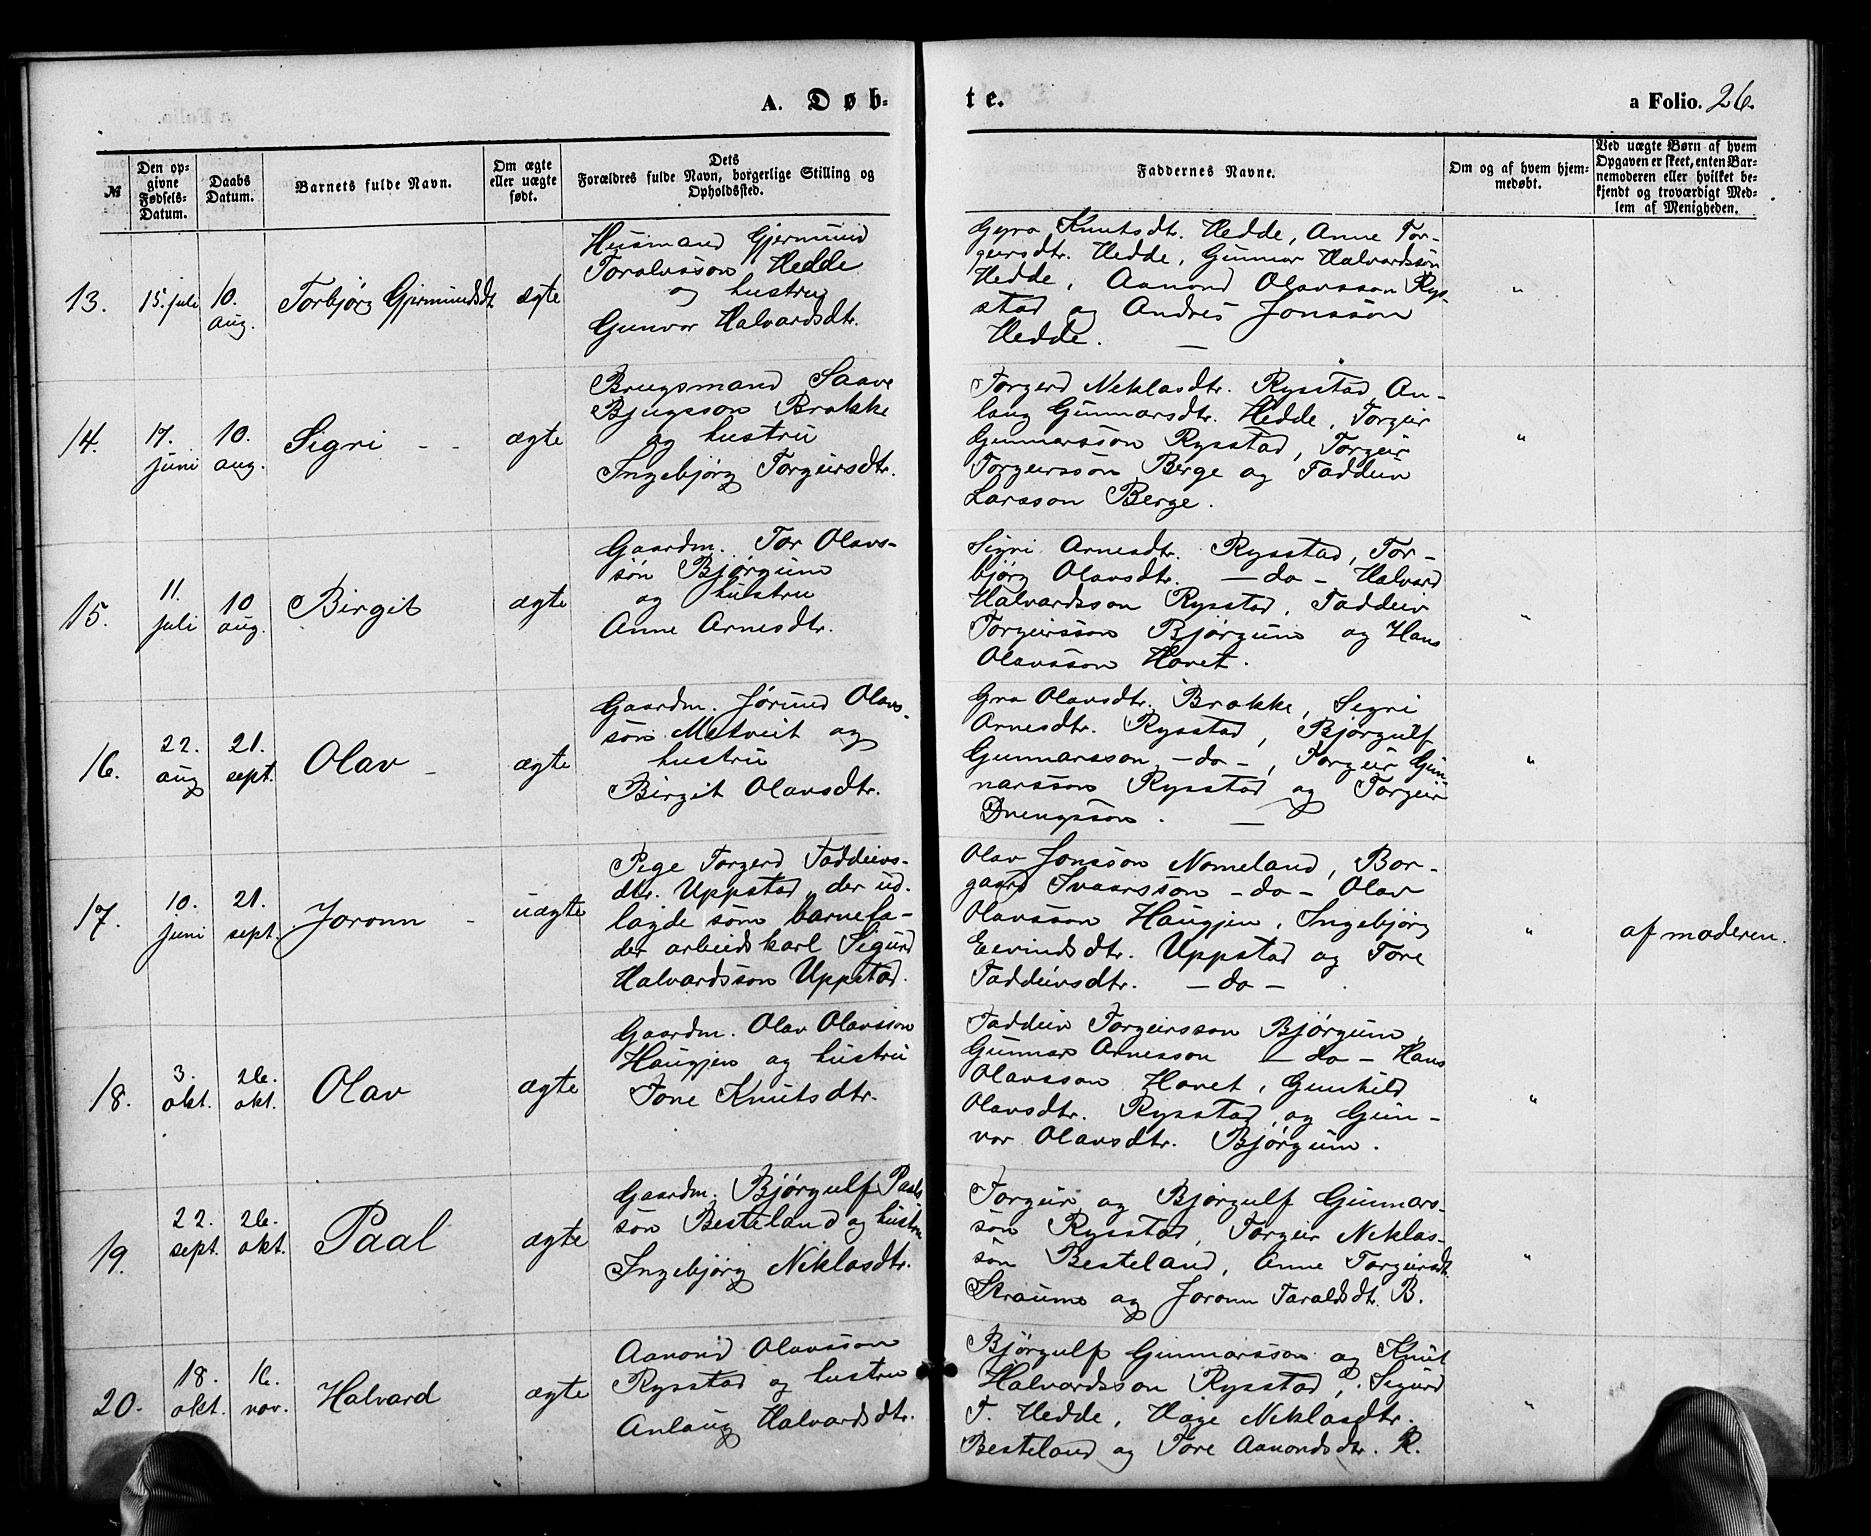 A. Døb-
te.
a Folio. 26.
№
Den op-
givne
Fødsels-
Datum.
Daabs
Datum.
Barnets fulde Navn.
Om ægte
eller uægte
født.
Dets
Forældres fulde Navn, borgerlige Stilling og
Opholdssted.
Faddernes Navne.
Om og af hvem hjem-
medøbt.
Ved uægte Børn af hvem
Opgaven er skeet, enten Bar-
nemoderen eller hvilket be-
kjendt og troværdigt Med-
lem af Menigheden.
13.
15. juli
10.
aug.
Torbjørg Gjermundsdt.
ægte
Husmand Gjermund
Toralvsson Hedde
og hustru
Gunvor Halvardsdtr.
Gyro Knutsdtr. Hedde, Anne Tor-
geirsdtr. Hedde, Gunnar Halvardsson
Hedde, Aanond Olavsson Rys-
stad og Andres Jonsson
Hedde. —
"
14.
17.
juni
10.
aug.
Sigri - -
ægte
Brugsmand Saave
Bjugsson Brokke
og hustru
Ingebjørg Torgeirsdtr.
Torgerd Neklasdtr. Rysstad, An-
laug Gunnarsdtr. Hedde, Torgeir
Gunnarsson Rysstad, Torgeir
Torgeirsson Berge og Taddeiv
Larsson Berge.
"
15.
11.
juli
10
aug.
Birgit
ægte
Gaardm. Tor Olavs-
søn Bjørgum
og hustru
Anne Arnesdtr.
Sigri Arnesdtr. Rysstad, Tor-
bjørg Olavsdtr. — do — Halvard
Halvardsson Rysstad, Taddeiv
Torgeirsson Bjørgum og Hans
Olavsson Hovet.
"
16.
22.
aug
21.
sept.
Olav -
ægte
Gaardm. Jørund Olavs-
søn Metveit og
hustru
Birgit Olavsdtr.
Gro Olavsdtr. Brokke, Sigri
Arnesdtr. Rysstad, Bjørgulf
Gunnarsson — do —, Torgeir Gun-
narsson Rysstad og Torgeir
Drengsson. —
"
17.
10.
juni
21.
sept.
Joronn -
uægte
Pige Torgerd Taddeivs-
dtr. Uppstad, der ud-
lagde som barnefa-
der arbeidskarl Sigurd
Halvardsson Uppstad.
Olav Jonsson Nomeland, Bor-
gaard Svaarsson — do — Olav
Olavsson Haugjen, Ingebjørg
Eivindsdtr. Uppstad og Tore
Taddeivsdtr. — do —.
"
af moderen.
18.
3.
okt.
26.
okt.
Olav
ægte
Gaardm. Olav Olavsson
Haugjen og hustru
Tone Knutsdtr.
Taddeiv Torgeirsson Bjørgum,
Gunnar Arnesson — do — Hans
Olavsson Hovet, Gunhild
Olavsdtr. Rysstad og Gun-
vor Olavsdtr. Bjørgum.
"
19.
22.
sept.
26.
okt.
Paal
ægte
Gaardm. Bjørgulf Paals-
søn Besteland og hustru
Ingebjørg Neklasdtr.
Torgeir og Bjørgulf Gunnars-
søn Rysstad, Torgeir Neklas-
søn Besteland, Anne Torgeirsdt.
Straume og Joronn Taraldsdt. B.
"
20.
18.
okt.
16.
nov.
Halvard
ægte
Aanond Olavsson
Rysstad og hustru
Anlaug Halvardsdtr.
Bjørgulf Gunnarsson og Knut
Halvardsson Rysstad, Sigurd
T. Hedde, Hæge Neklasdtr.
Besteland og Tore Aanondsdtr. R.
"